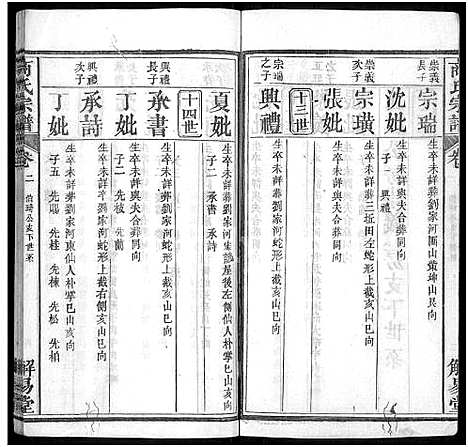 商氏宗譜
卷
解易堂
崇義長子
宗瑞
生卒未詳葬劉家河
坤山艮向
沈妣
生卒未詳與夫合葬同向
子一 興禮
崇義次子
宗璜
生卒未詳葬三坵田左蛇形上截亥山巳向
張妣
生卒未詳與夫合葬同向
十三世
宗瑞之子
興禮
生卒未詳葬劉家河蛇形上截亥山巳向
夏妣
生卒未詳葬劉家河宋
屋後左側仙人朴掌巳山亥向
子二 承書 承詩
十四世
興禮長子
承書
生卒未詳葬劉家河蛇形上截亥山巳向
丁妣
生卒未詳與夫合葬同向
子二 先桂 先蘭
興禮次子
承詩
生卒未詳葬劉家河蛇形上截右側亥山巳向
丁妣
生卒未詳葬劉家河東仙人朴掌巳山亥向
子五 先陽 先桂 先棟 先松 先栢
商氏宗譜
卷二
伯琦公支下世系
解易堂